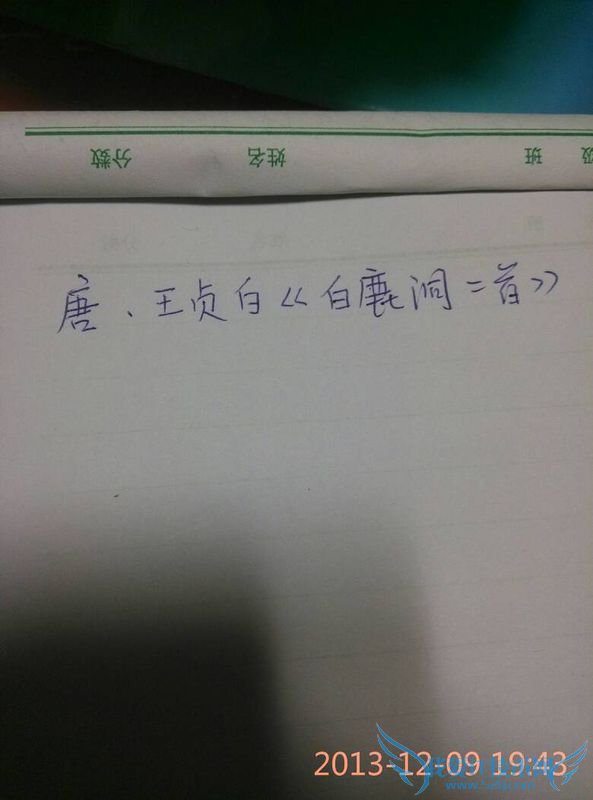 分数 姓名 班 级
唐、王贞白《白鹿洞二首》
2013-12-09 19:43